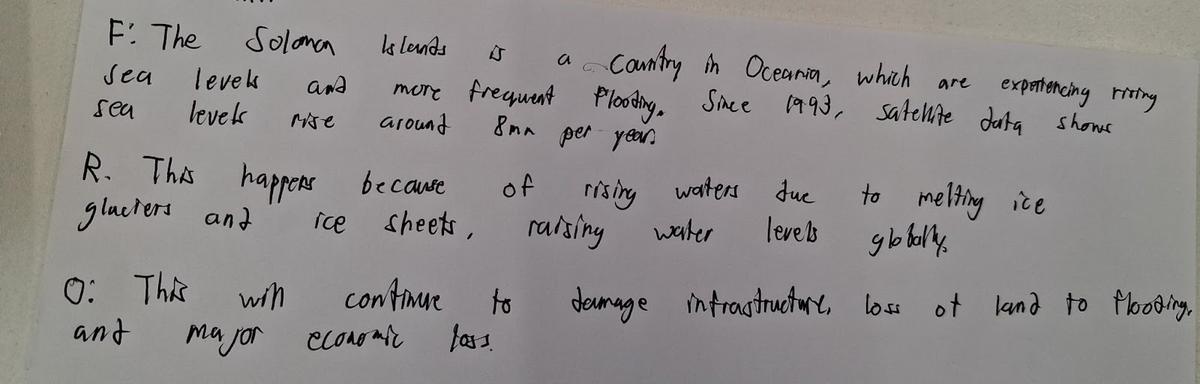 F: The Solomon Islands is a Country in Oceania, which are experiencing rising
sea levels and more frequent flooding. Since 1993, satellite data shows
sea levels rise around 8mm per year.
R. This happens because of rising waters due to melting ice
glaciers and ice sheets, raising water levels globally.
O: This will continue to damage infrastructure, loss of land to flooding,
and major economic loss.